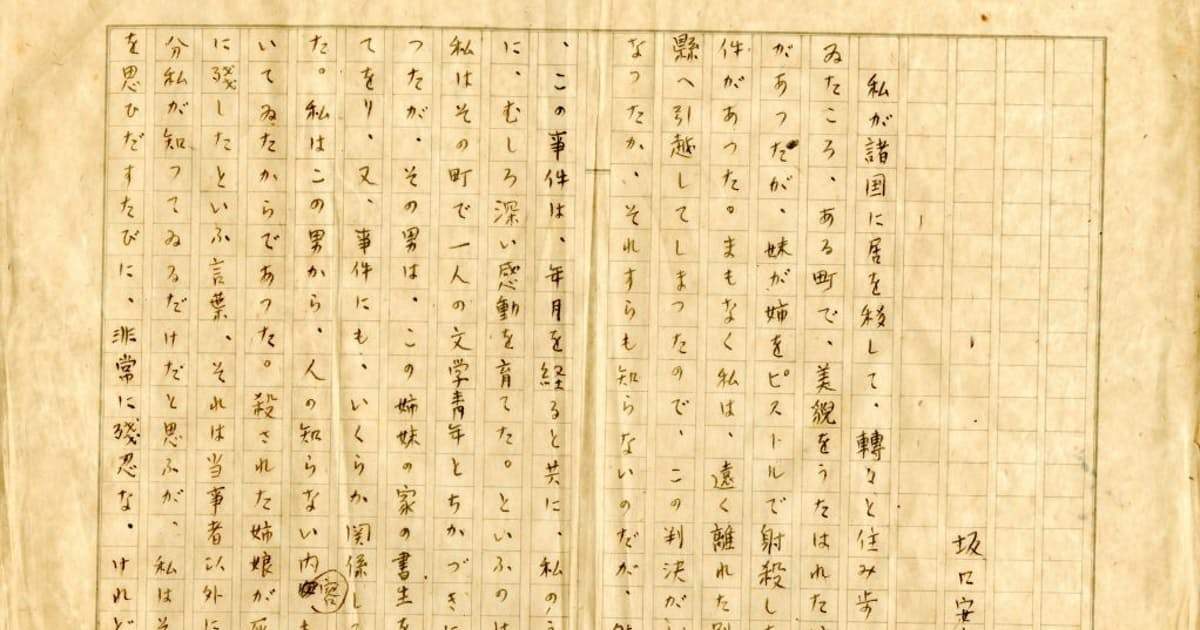 坂口安
私が諸国に居を移して、轉々と住み歩
ゐたころ、ある町で、美貌をうたはれた
があつたが、妹が姉をピストルで射殺し
件があつた。まもなく私は、遠く離れた別
縣へ引越してしまつたので、この判決が
なつたか、それすらも知らないのだが、
、この事件は、年月を経ると共に、私の
に、むしろ深い感動を育てた。といふのは
私はその町で一人の文学青年とちかづきに
つたが、その男は、この姉妹の家の書生を
てをり、又、事件にも、いくらか関係し
た。私はこの男から、人の知らない内容
いてゐたからであつた。殺された姉娘が死
に残したといふ言葉、それは当事者以外に
分私が知つてゐるだけだと思ふが、私はそ
を思ひだすたびに、非常に残忍な、けれど